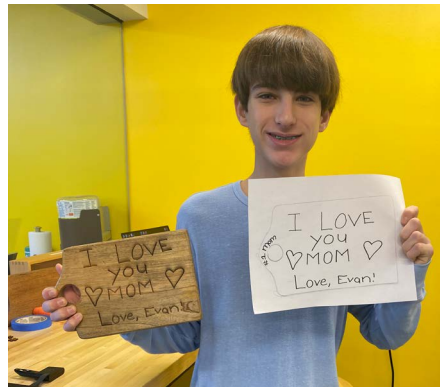 I LOVE
YOU
MOM
Love, Evan!
I LOVE
YOU
MOM
Love, Evan!
#1 Mom